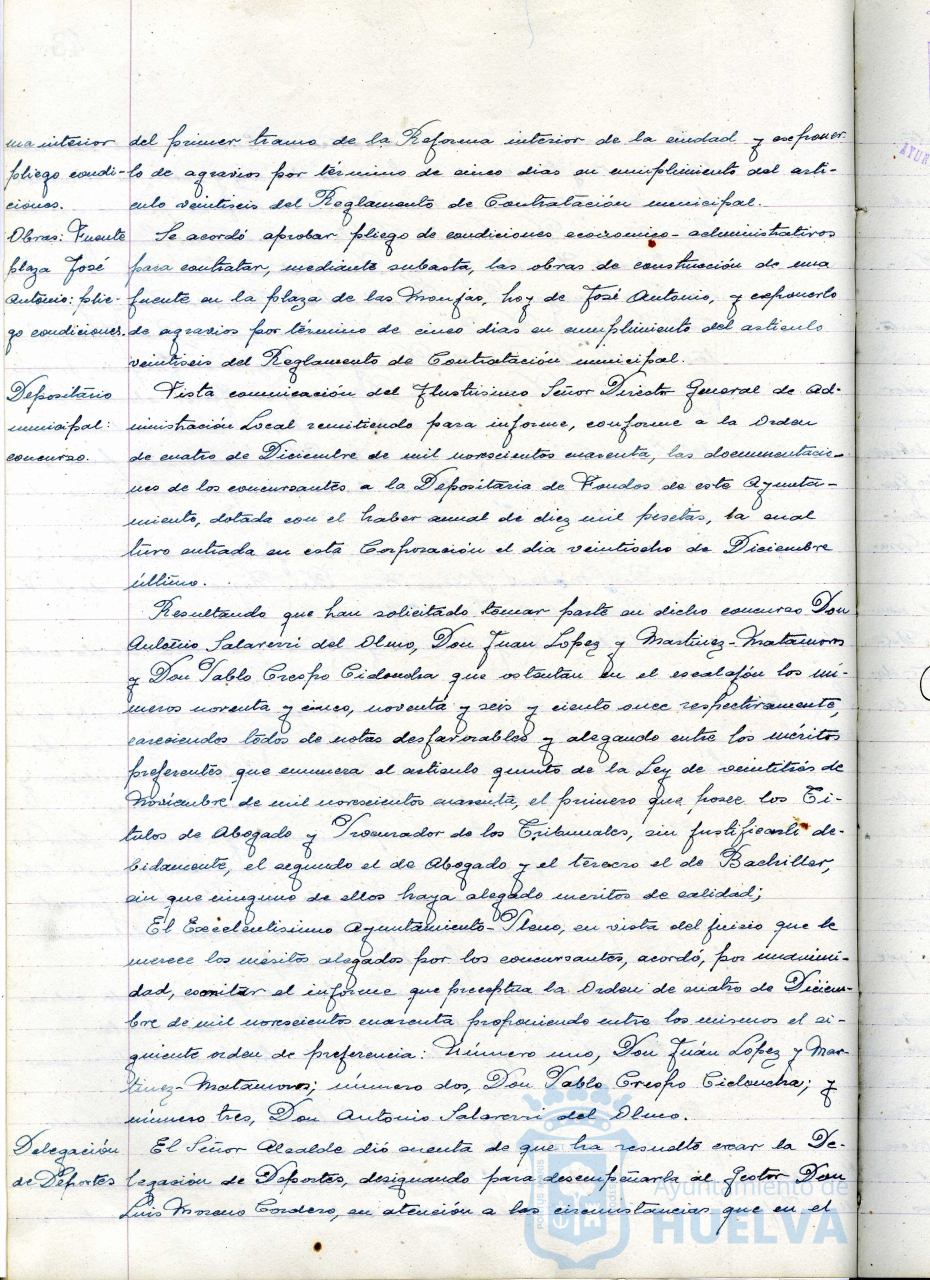 ma interior
pliego condi-
ciones.
del primer tramo de la Reforma interior de la ciudad y exponer
lo de agravios por término de cinco dias en cumplimiento del arti-
culo veintiseis del Reglamento de Contratación municipal.
Obras: Fuente
plaza José
Antonio: plie-
go condiciones.
Se acordó aprobar pliego de condiciones economico-administrativos
para contratar, mediante subasta, las obras de construcción de una
fuente en la plaza de las Monjas, hoy de José Antonio, y exponerlo
de agravios por término de cinco dias en cumplimiento del articulo
veintiseis del Reglamento de Contratación municipal.
Depositario
municipal:
concurso.
Vista comunicación del Ilustrisimo Señor Director General de Ad-
ministración Local remitiendo para informe, conforme a la Orden
de cuatro de Diciembre de mil novescientos cuarenta, las documentacio-
nes de los concursantes a la Depositaria de Fondos de este Ayunta-
miento, dotada con el haber anual de diez mil pesetas, la cual
tuvo entrada en esta Corporación el dia veintiocho de Diciembre
último.
Resultando que han solicitado tomar parte en dicho concurso Don
Antonio Salaverri del Olmo, Don Juan Lopez y Martinez-Matamoros
y Don Pablo Crespo Cidoncha que ostentan en el escalafón los nú-
meros noventa y cinco, noventa y seis y ciento once respectivamente,
careciendos todos de notas desfavorables y alegando entre los méritos
preferentes que enumera el articulo quinto de la Ley de veintitrés de
Noviembre de mil novescientos cuarenta, el primero que posee los Ti-
tulos de Abogado y Procurador de los Tribunales, sin justificarlo de-
bidamente, el segundo el de Abogado y el tercero el de Bachiller,
sin que ninguno de ellos haya alegado meritos de calidad;
El Excelentisimo Ayuntamiento-Pleno, en vista del juicio que le
merece los méritos alegados por los concursantes, acordó, por unanimi-
dad, emitar el informe que preceptua la Orden de cuatro de Diciem-
bre de mil novescientos cuarenta proponiendo entre los mismos el si-
guiente orden de preferencia: Número uno, Don Juán Lopez y Mar-
tinez-Matamoros; número dos, Don Pablo Crespo Cidoncha; y
número tres, Don Antonio Salaverri del Olmo.
Delegación
de Deportes
El Señor Alcalde dió cuenta de que ha resuelto crear la De-
legasión de Deportes, designando para desempeñarla al Gestor Don
Luis Moreno Cordero, en atención a las circunstancias que en el
Ayuntamiento de
HUELVA